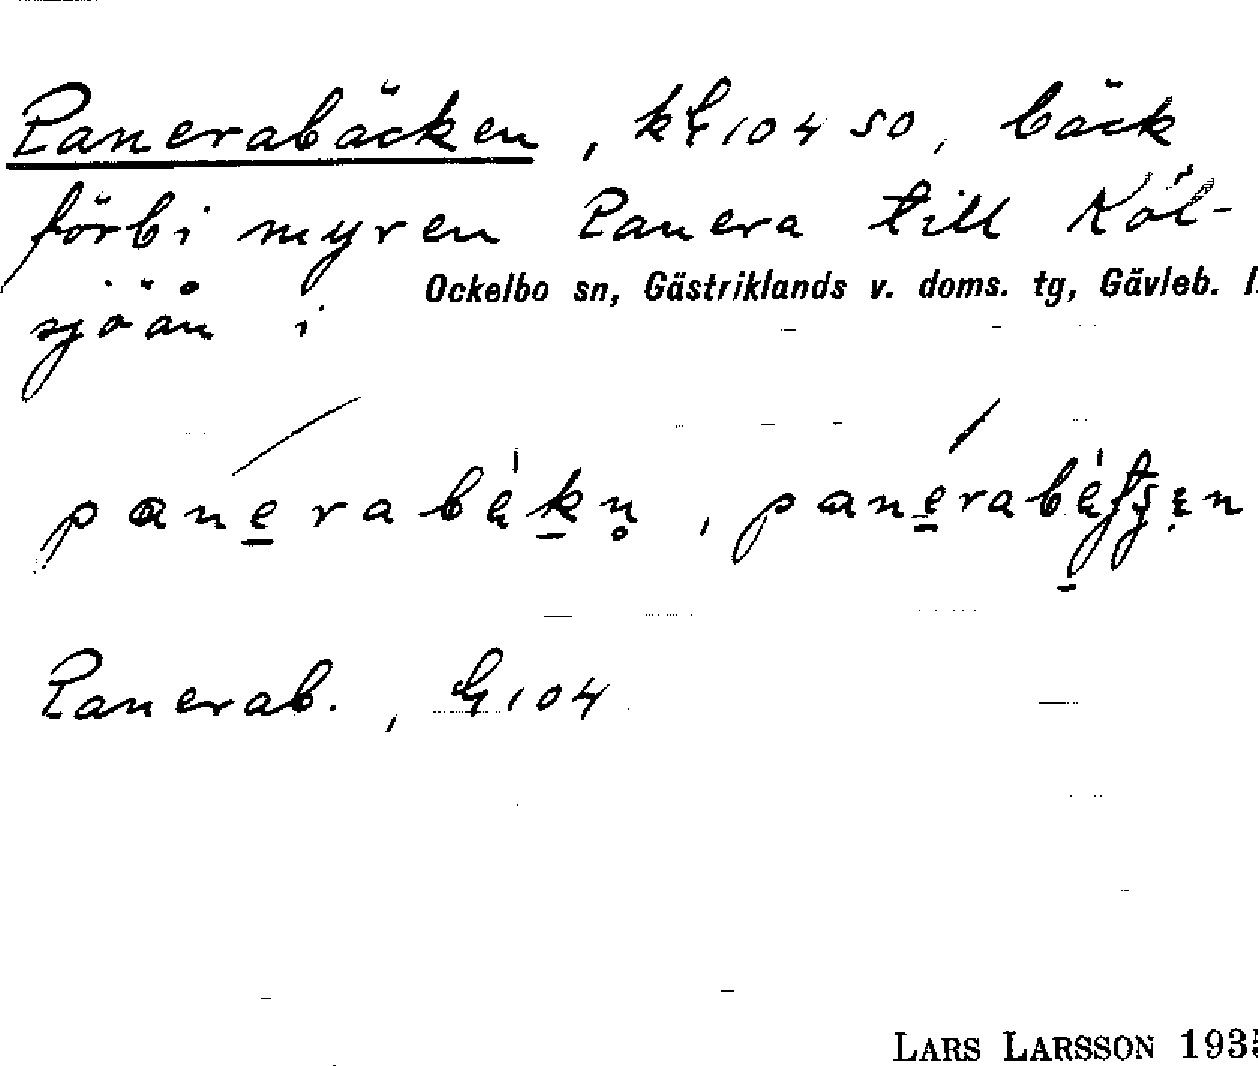 Panerabäcken, kG 104 SO, bäck
förbi myren Panera till Köl-
sjöån i Ockelbo sn, Gästriklands v. doms. tg, Gävleb. l.
Panerab., G 104
LARS LARSSON 193